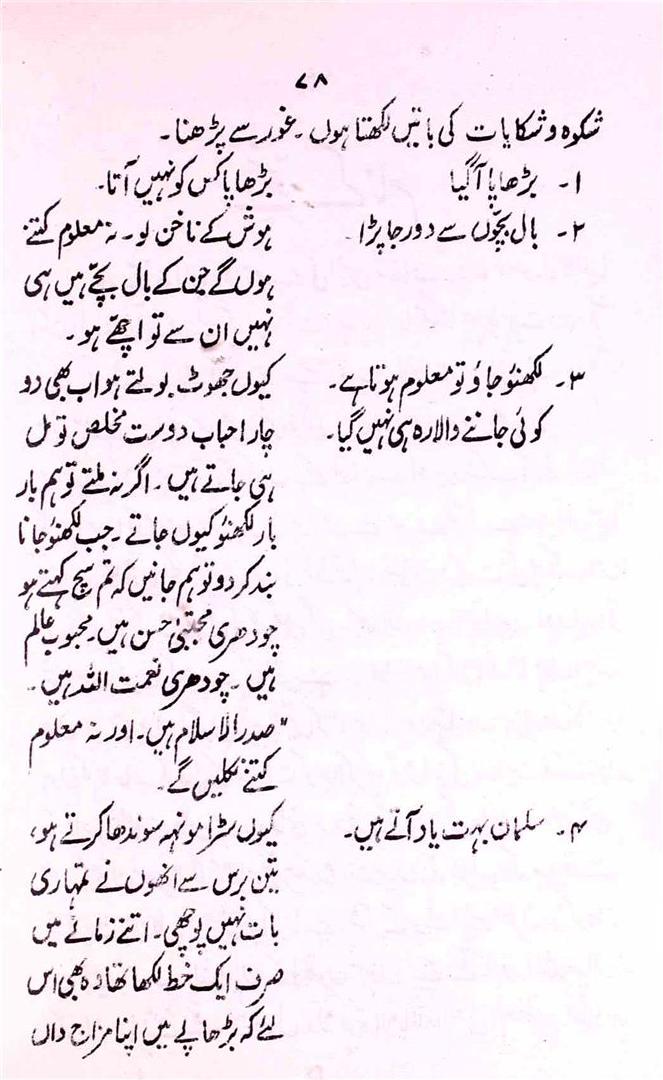 ۷۸
شکوہ و شکایات کی باتیں لکھتا ہوں۔ غور سے پڑھنا۔
۱۔ بڑھاپا آ گیا
بڑھاپا کس کو نہیں آتا۔
۲۔ بال بچّوں سے دور جا پڑا۔
ہوش کے ناخن لو۔ نہ معلوم کتنے
ہوں گے جن کے بال بچّے ہیں ہی
نہیں ان سے تو اچھّے ہو۔
۳۔ لکھنؤ جاؤ تو معلوم ہوتا ہے۔
کوئی جاننے والا رہ ہی نہیں گیا۔
کیوں جھوٹ بولتے ہو اب بھی دو
چار احباب دوست مخلص تو مل
ہی جاتے ہیں۔ اگر نہ ملتے تو ہم بار
بار لکھنؤ کیوں جاتے۔ جب لکھنؤ جانا
بند کر دو تو ہم جانیں کہ تم سچ کہتے ہو
چودھری مجتبیٰ حسن ہیں۔ محبوب عالم
ہیں۔ چودھری نعمت اللہ ہیں۔
"صدر الاسلام ہیں۔ اور نہ معلوم
کتنے نکلیں گے۔
۴۔ سلمان بہت یاد آتے ہیں۔
کیوں سڑا مونہہ سوندھا کرتے ہو،
تین برس سے انھوں نے تمہاری
بات نہیں پوچھی۔ اتنے زمانے میں
صرف ایک خط لکھا تھا وہ بھی اس
لئے کہ بڑھاپے میں اپنا مزاج داں